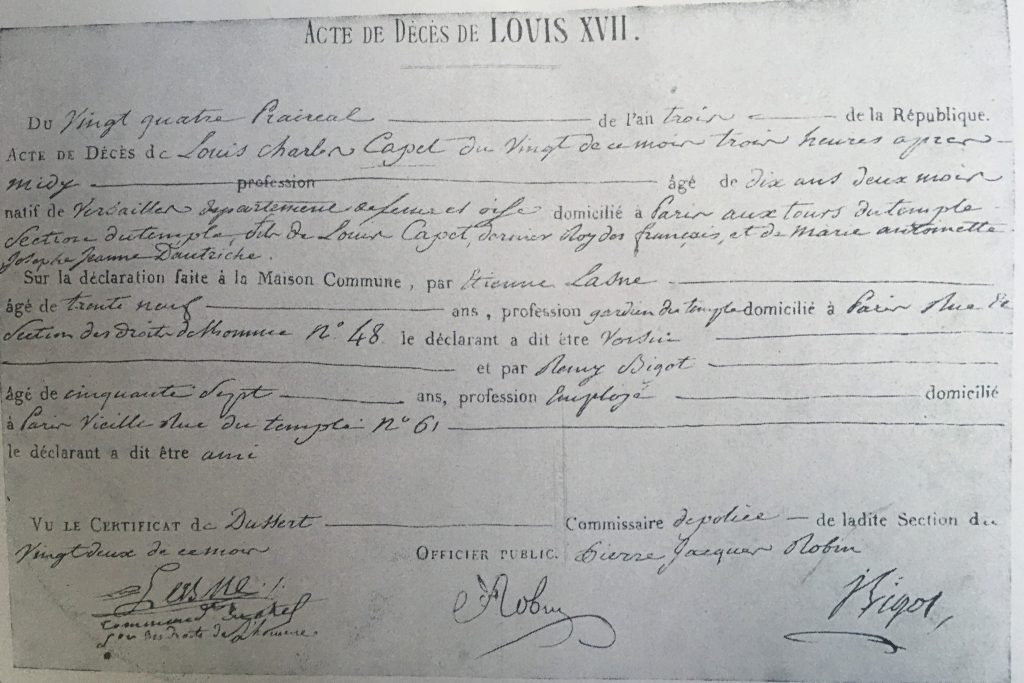 ACTE DE DÉCÈS DE LOUIS XVII.
DU Vingt quatre Praireal de l'an trois de la République.
ACTE DE DÉCÈS de Louis Charles Capet du Vingt de ce mois trois heures apres
midy profession âgé de dix ans deux mois
natif de Versailles departement de seine et oise domicilié à Paris aux tours du temple
Section du temple, fils de Louis Capet, dernier Roy des français, et de Marie antoinette
Josephe Jeanne Dautriche.
Sur la déclaration faite à la Maison Commune, par Etienne Lasne
âgé de trente neuf ans, profession gardien du temple domicilié à Paris Rue et
Section des droits de lhomme N° 48 le déclarant a dit être Voisin
et par Remy Bigot
âgé de cinquante Sept ans, profession Employé domicilié
à Paris Vieille Rue du temple N° 61
le déclarant a dit être ami
VU LE CERTIFICAT de Dussert Commissaire de police de ladite Section du
Vingt deux de ce mois OFFICIER PUBLIC. Pierre Jacques Robin
Lasne Robin Bigot
Son des droits de L'homme